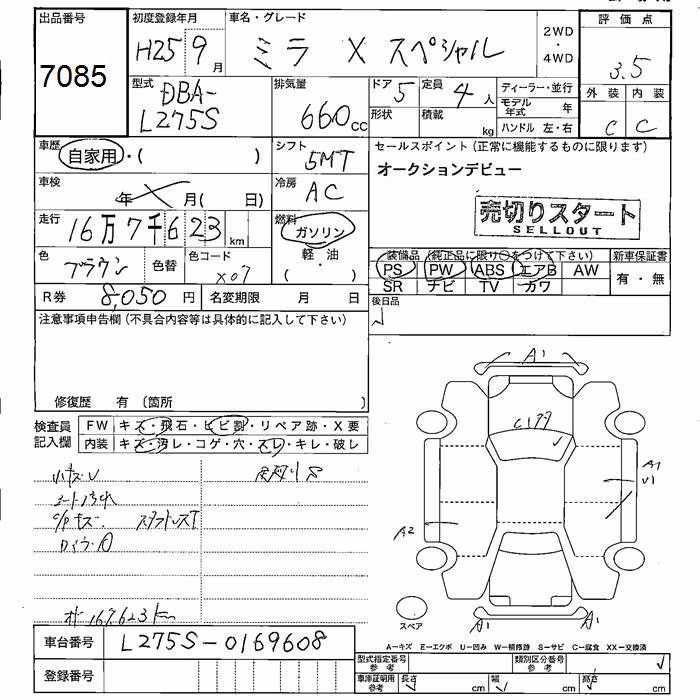 出品番号
7085
初度登録年月
H25 9月
車名・グレード
ミラ X スペシャル
2WD
・
4WD
評価点
3.5
外装 内装
C C
型式
DBA-
L275S
排気量
660cc
ドア 5
定員 4人
形状
積載 kg
ディーラー・並行
モデル年式 年
ハンドル 左・右
車歴
自家用・( )
シフト
5MT
セールスポイント (正常に機能するものに限ります)
オークションデビュー
売切りスタート
SELLOUT
車検
年 月( 日)
冷房
AC
走行
16万7千623km
燃料
ガソリン
(軽・油)
色
ブラウン
色替
色コード
X07
R券 8,050円
名変期限 月 日
装備品 (純正品に限り○をつけて下さい)
PS PW ABS エアB AW
SR ナビ TV カワ
新車保証書
有・無
後日品
注意事項申告欄 (不具合内容等は具体的に記入して下さい)
修復歴 有 〔箇所 〕
検査員記入欄
FW キズ・飛石・ヒビ割・リペア跡・X要
内装 キズ・汚レ・コゲ・穴・スレ・キレ・破レ
小キズU
シート汚れ
c/pキズ
スタッドレスT
167,623km
A1
A1
U1
A2
A1
A1
スペア
A-キズ E-エクボ U-凹み W-補修跡 S-サビ C-腐食 XX-交換済
車台番号
L275S-0169608
登録番号
型式指定番号
参考
類別区分番号
参考
車庫証明用
参考
長さ cm 幅 cm 高さ cm